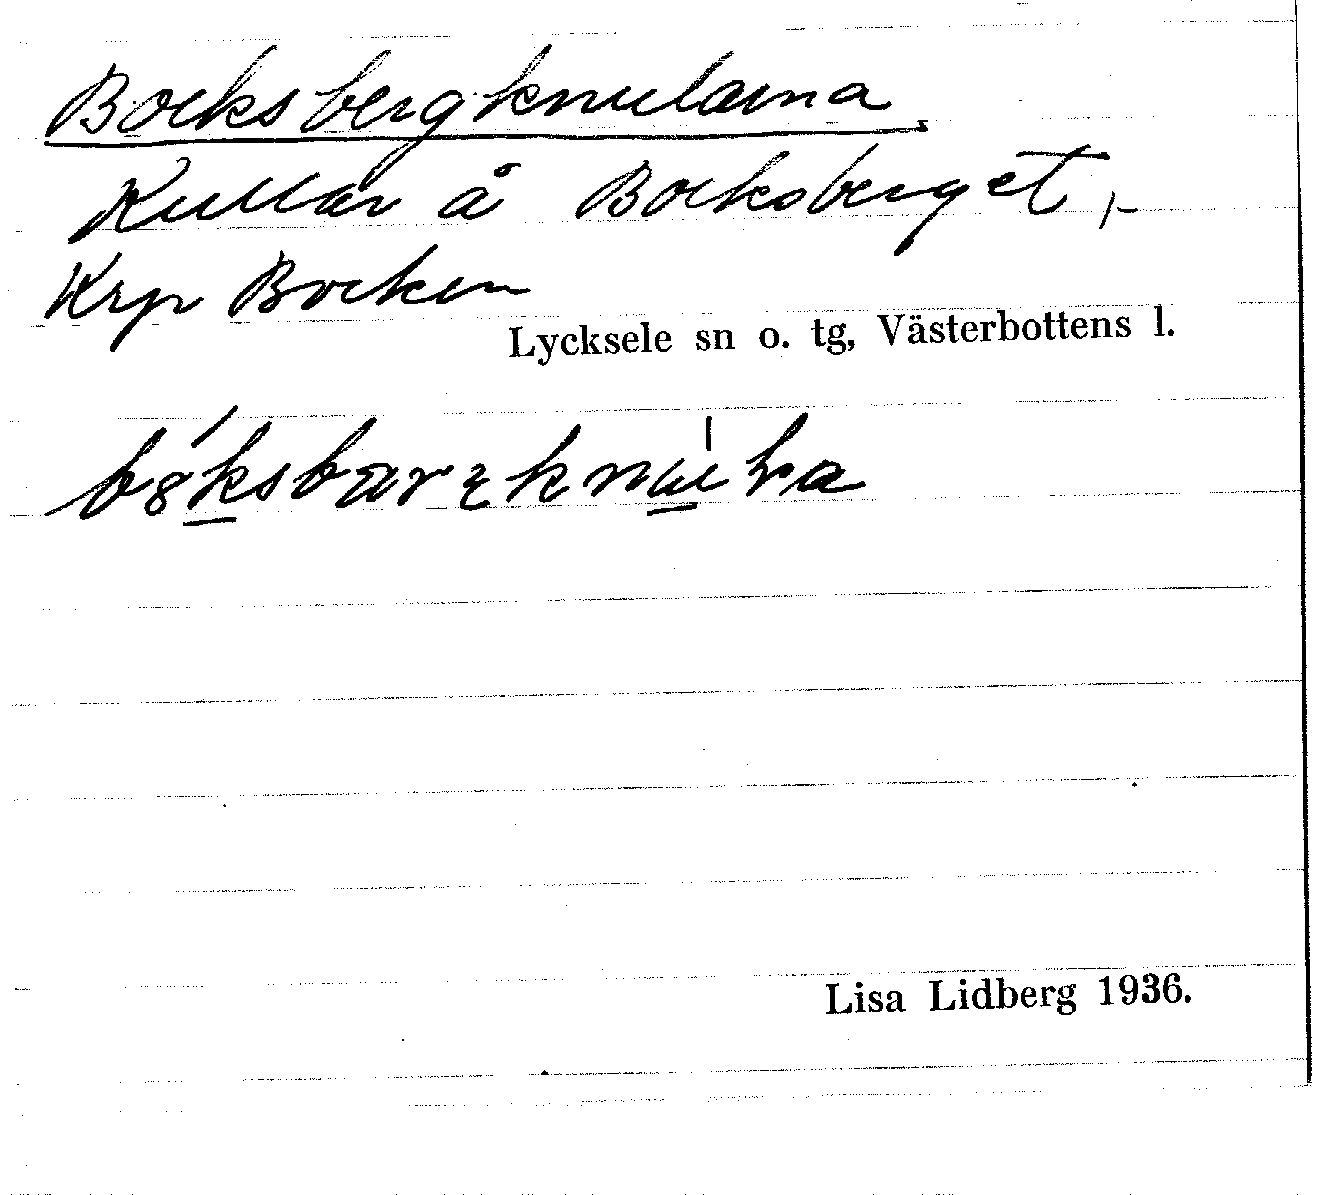 Bocksbergknularna
Kullar å Bocksberget,-
Krp Bocken
Lycksele sn o. tg, Västerbottens l.
Lisa Lidberg 1936.